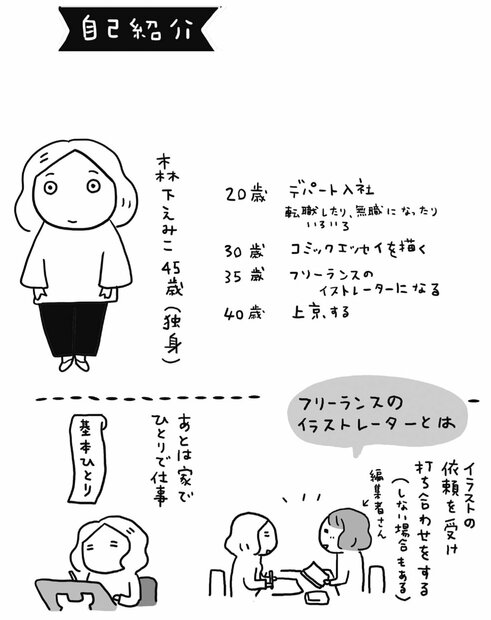 自己紹介
森下えみこ 45歳（独身）
20歳 デパート入社
転職したり、無職になったり
いろいろ
30歳 コミックエッセイを描く
35歳 フリーランスの
イストレーターになる
40歳 上京する
フリーランスの
イラストレーターとは
イラストの
依頼を受け
打ち合わせをする
（しない場合もある）
編集者さん
あとは家で
ひとりで仕事
基本ひとり